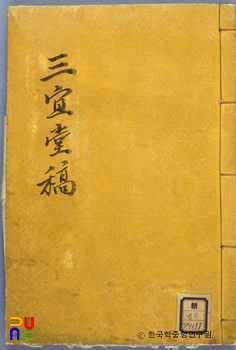 三宜堂稿
© 한국학중앙연구원